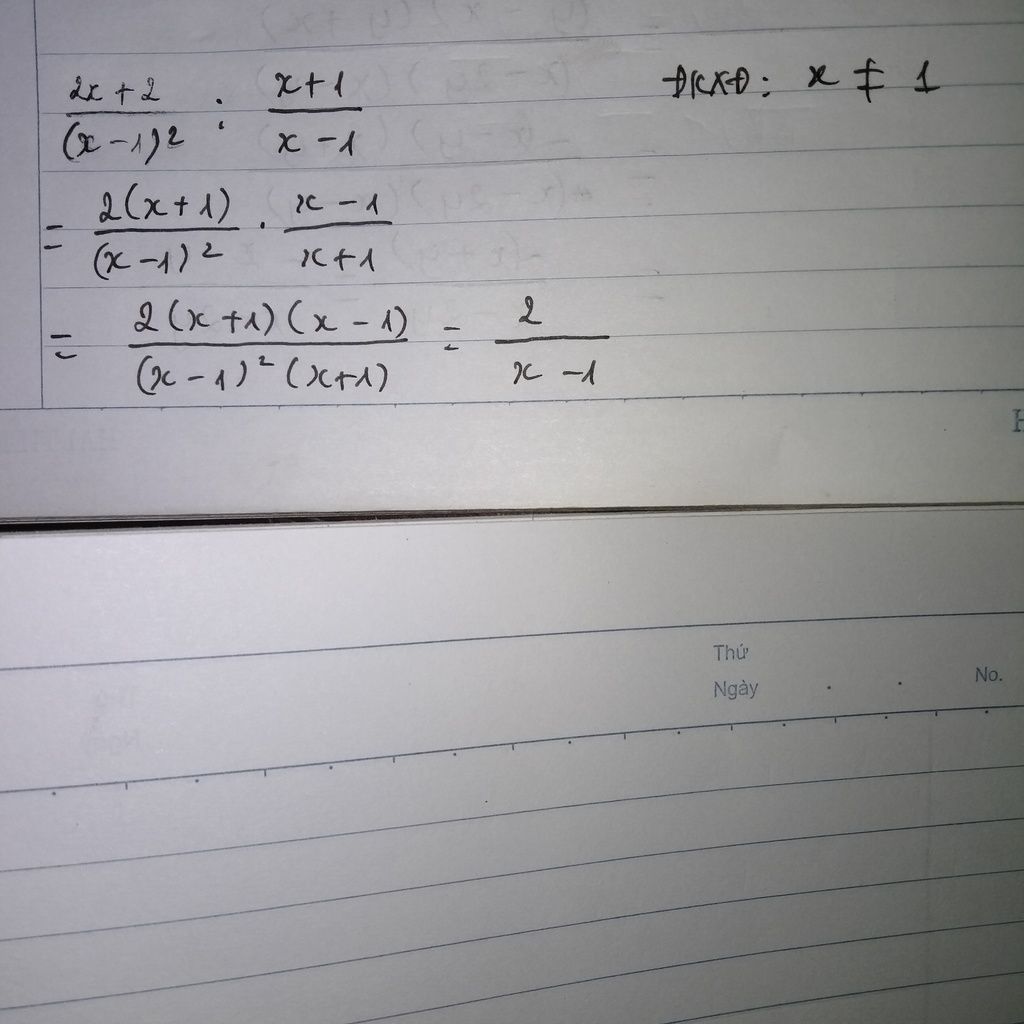 (2x + 2)/(x - 1)² : (x + 1)/(x - 1) ĐKXĐ: x ≠ 1
= 2(x + 1)/(x - 1)² · (x - 1)/(x + 1)
= 2(x + 1)(x - 1)/(x - 1)²(x + 1) = 2/(x - 1)
H
Thứ
Ngày . . No.